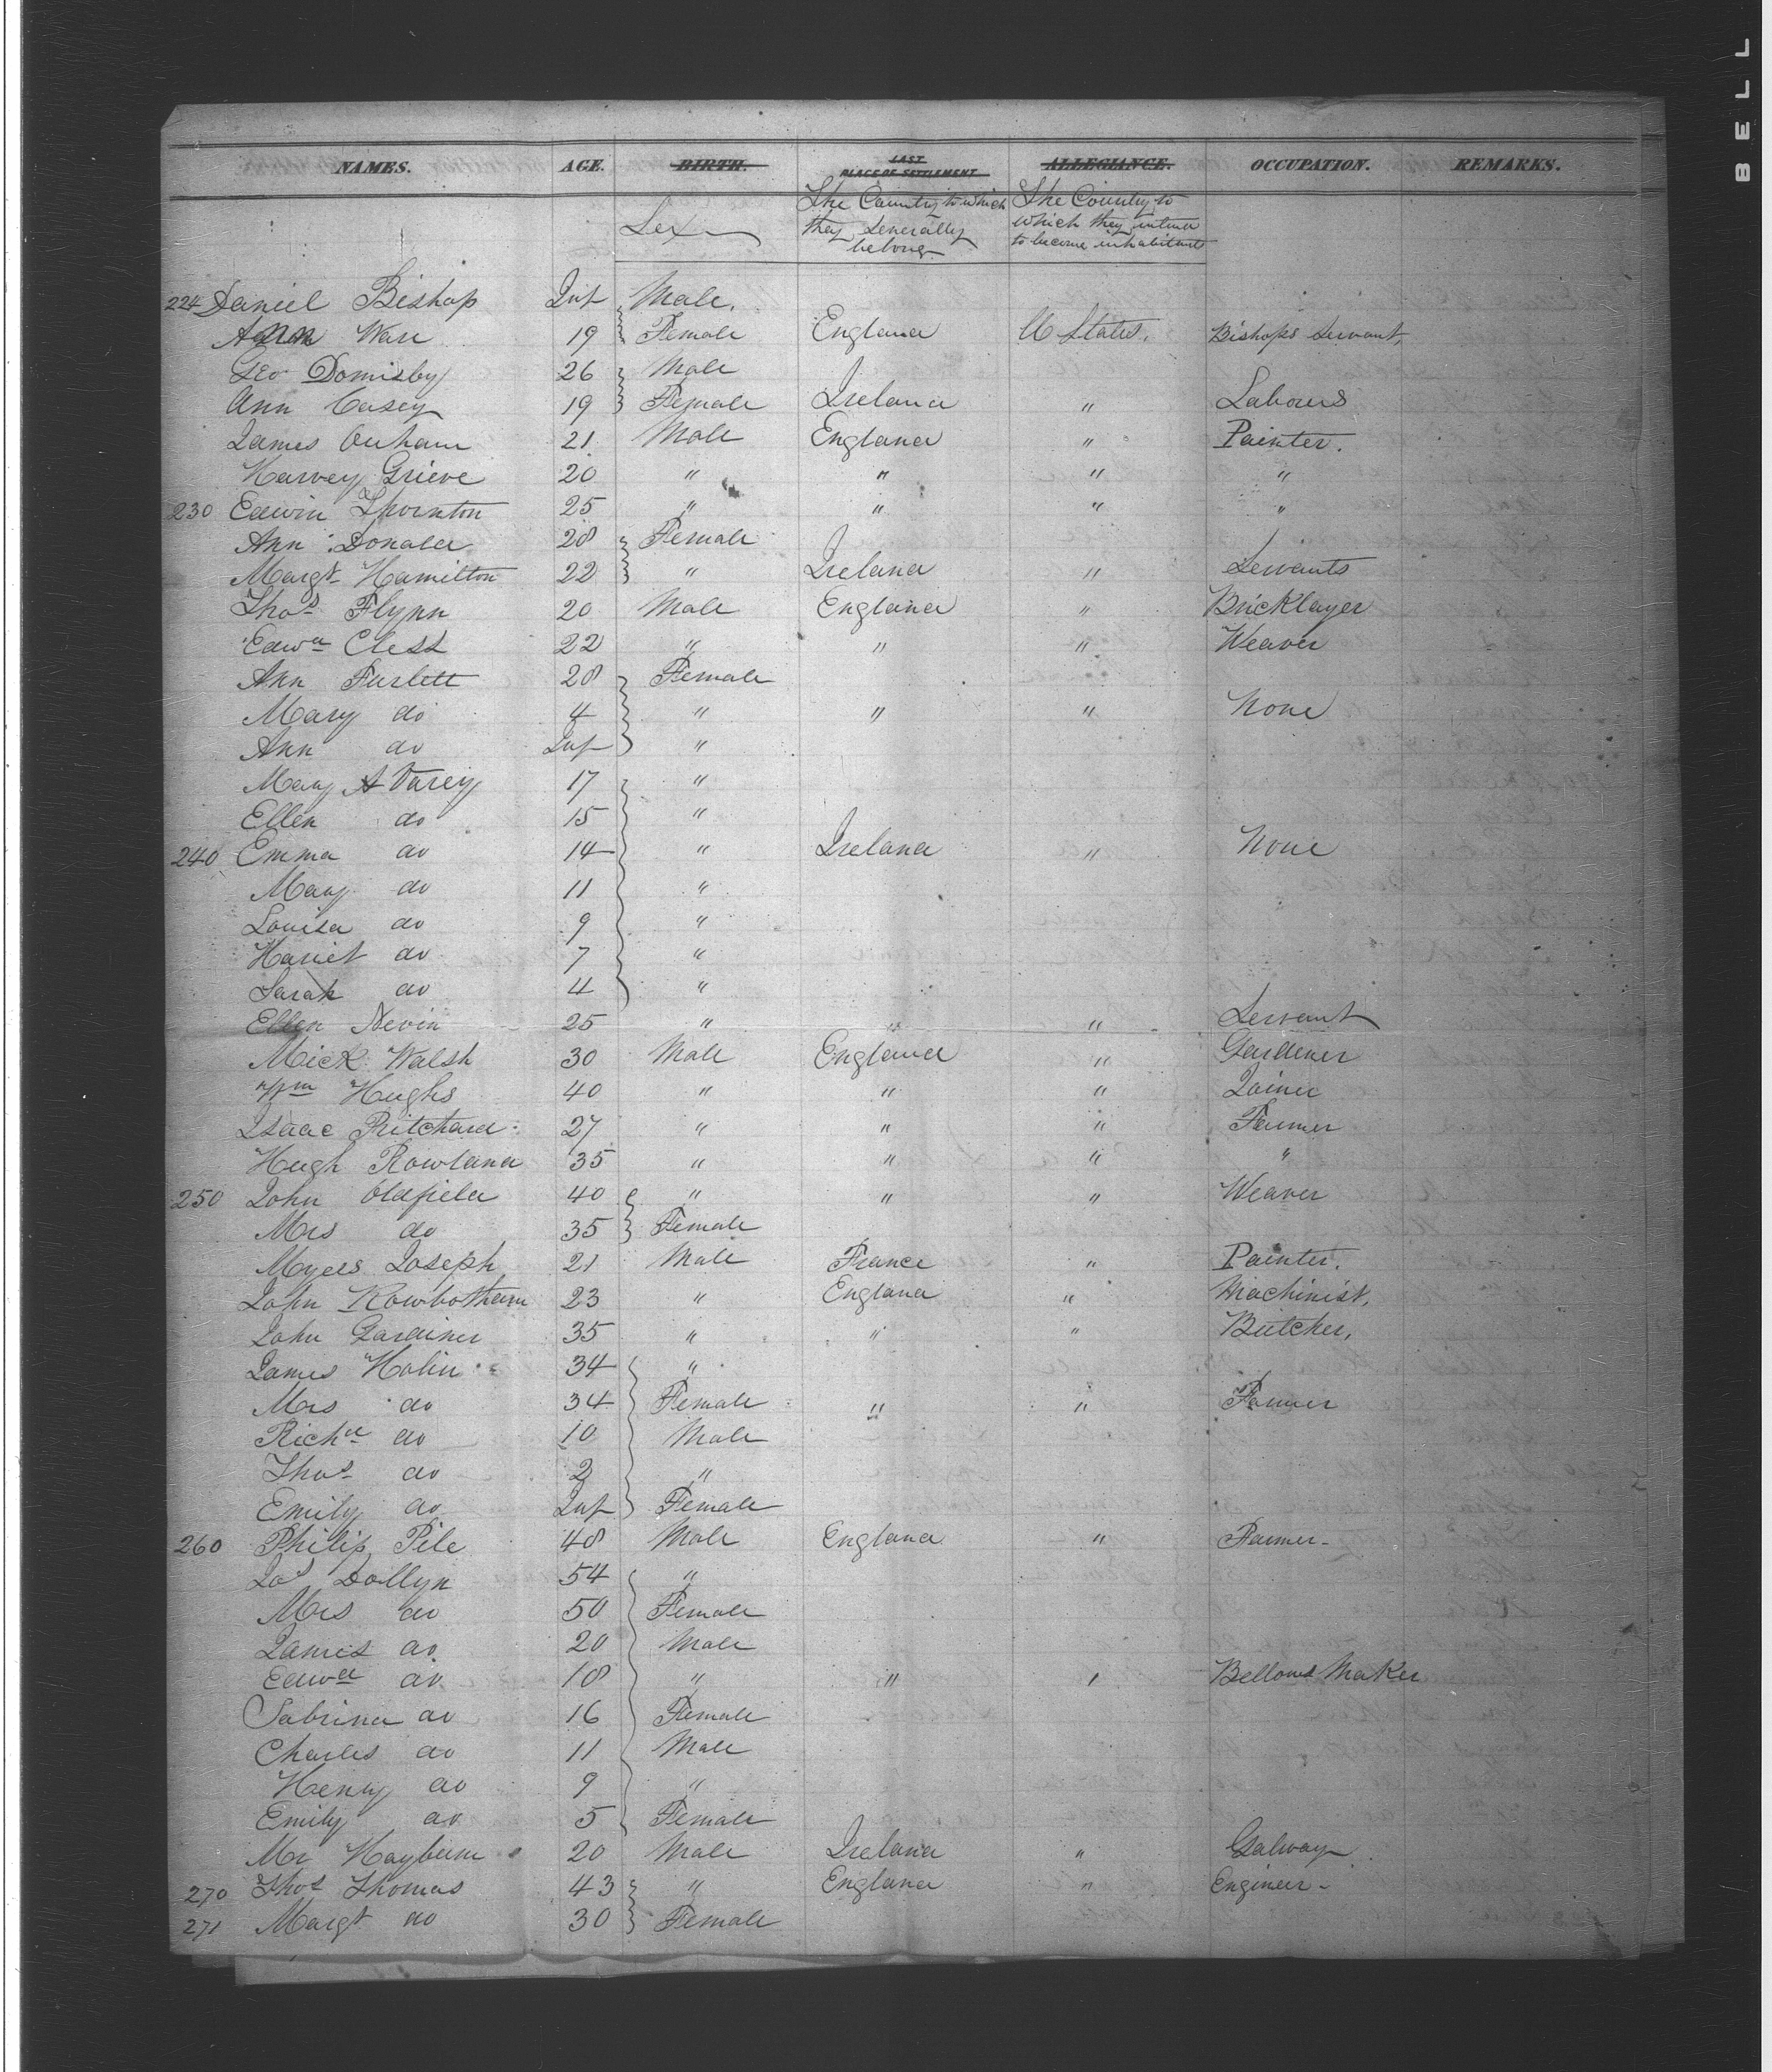 BELL
NAMES. AGE. BIRTH. LAST PLACE OF SETTLEMENT ALLEGIANCE. OCCUPATION. REMARKS.
Sex The Country to which they Generally belong The Country to which they intend to become inhabitants
224 Daniel Bishop Inf Male.
Ann Ware 19 Female England U States. Bishops Servant,
Geo Domisby 26 Male
Ann Casey 19 Female Ireland " Labours
James 21 Male England " Painter.
Harvey Grieve 20 " " " "
230 Edwin Thornton 25 " " " "
Ann Donald 28 Female
Margt Hamilton 22 " Ireland " Servants
Thos Flynn 20 Male England " Bricklayer
Edwd Clest 22 " " " Weaver
Ann Furlett 28 Female
Mary do 4 " " " None
Ann do Inf "
Mary A Varey 17 "
Ellen do 15 "
240 Emma do 14 " Ireland " None
Mary do 11 "
Louisa do 9 "
Hariet do 7 "
Sarah do 4 "
Ellen Nevin 25 " " " Servant
Mick Walsh 30 Male England " Gardener
Wm Hughs 40 " " " Joiner
Isaac Pritchard 27 " " " Farmer
Hugh Rowland 35 " " " "
250 John Oldfield 40 " " " Weaver
Mrs do 35 Female
Myers Joseph 21 Male France " Painter.
John Rowbotham 23 " England " Machinist,
John Gardiner 35 " " " Butcher,
James Holin 34 "
Mrs do 34 Female " " Farmer
Richd do 10 Male
Thos do 2 "
Emily do Inf Female
260 Philip Pile 48 Male England " Farmer-
Jos Dollyn 54 "
Mrs do 50 Female
James do 20 Male
Edwd do 18 " " " Bellows Maker
Sabrina do 16 Female
Charles do 11 Male
Henry do 9 "
Emily do 5 Female
Mr Hayburn 20 Male Ireland " Galway
270 Thos Thomas 43 " England " Engineer-
271 Margt do 30 Female